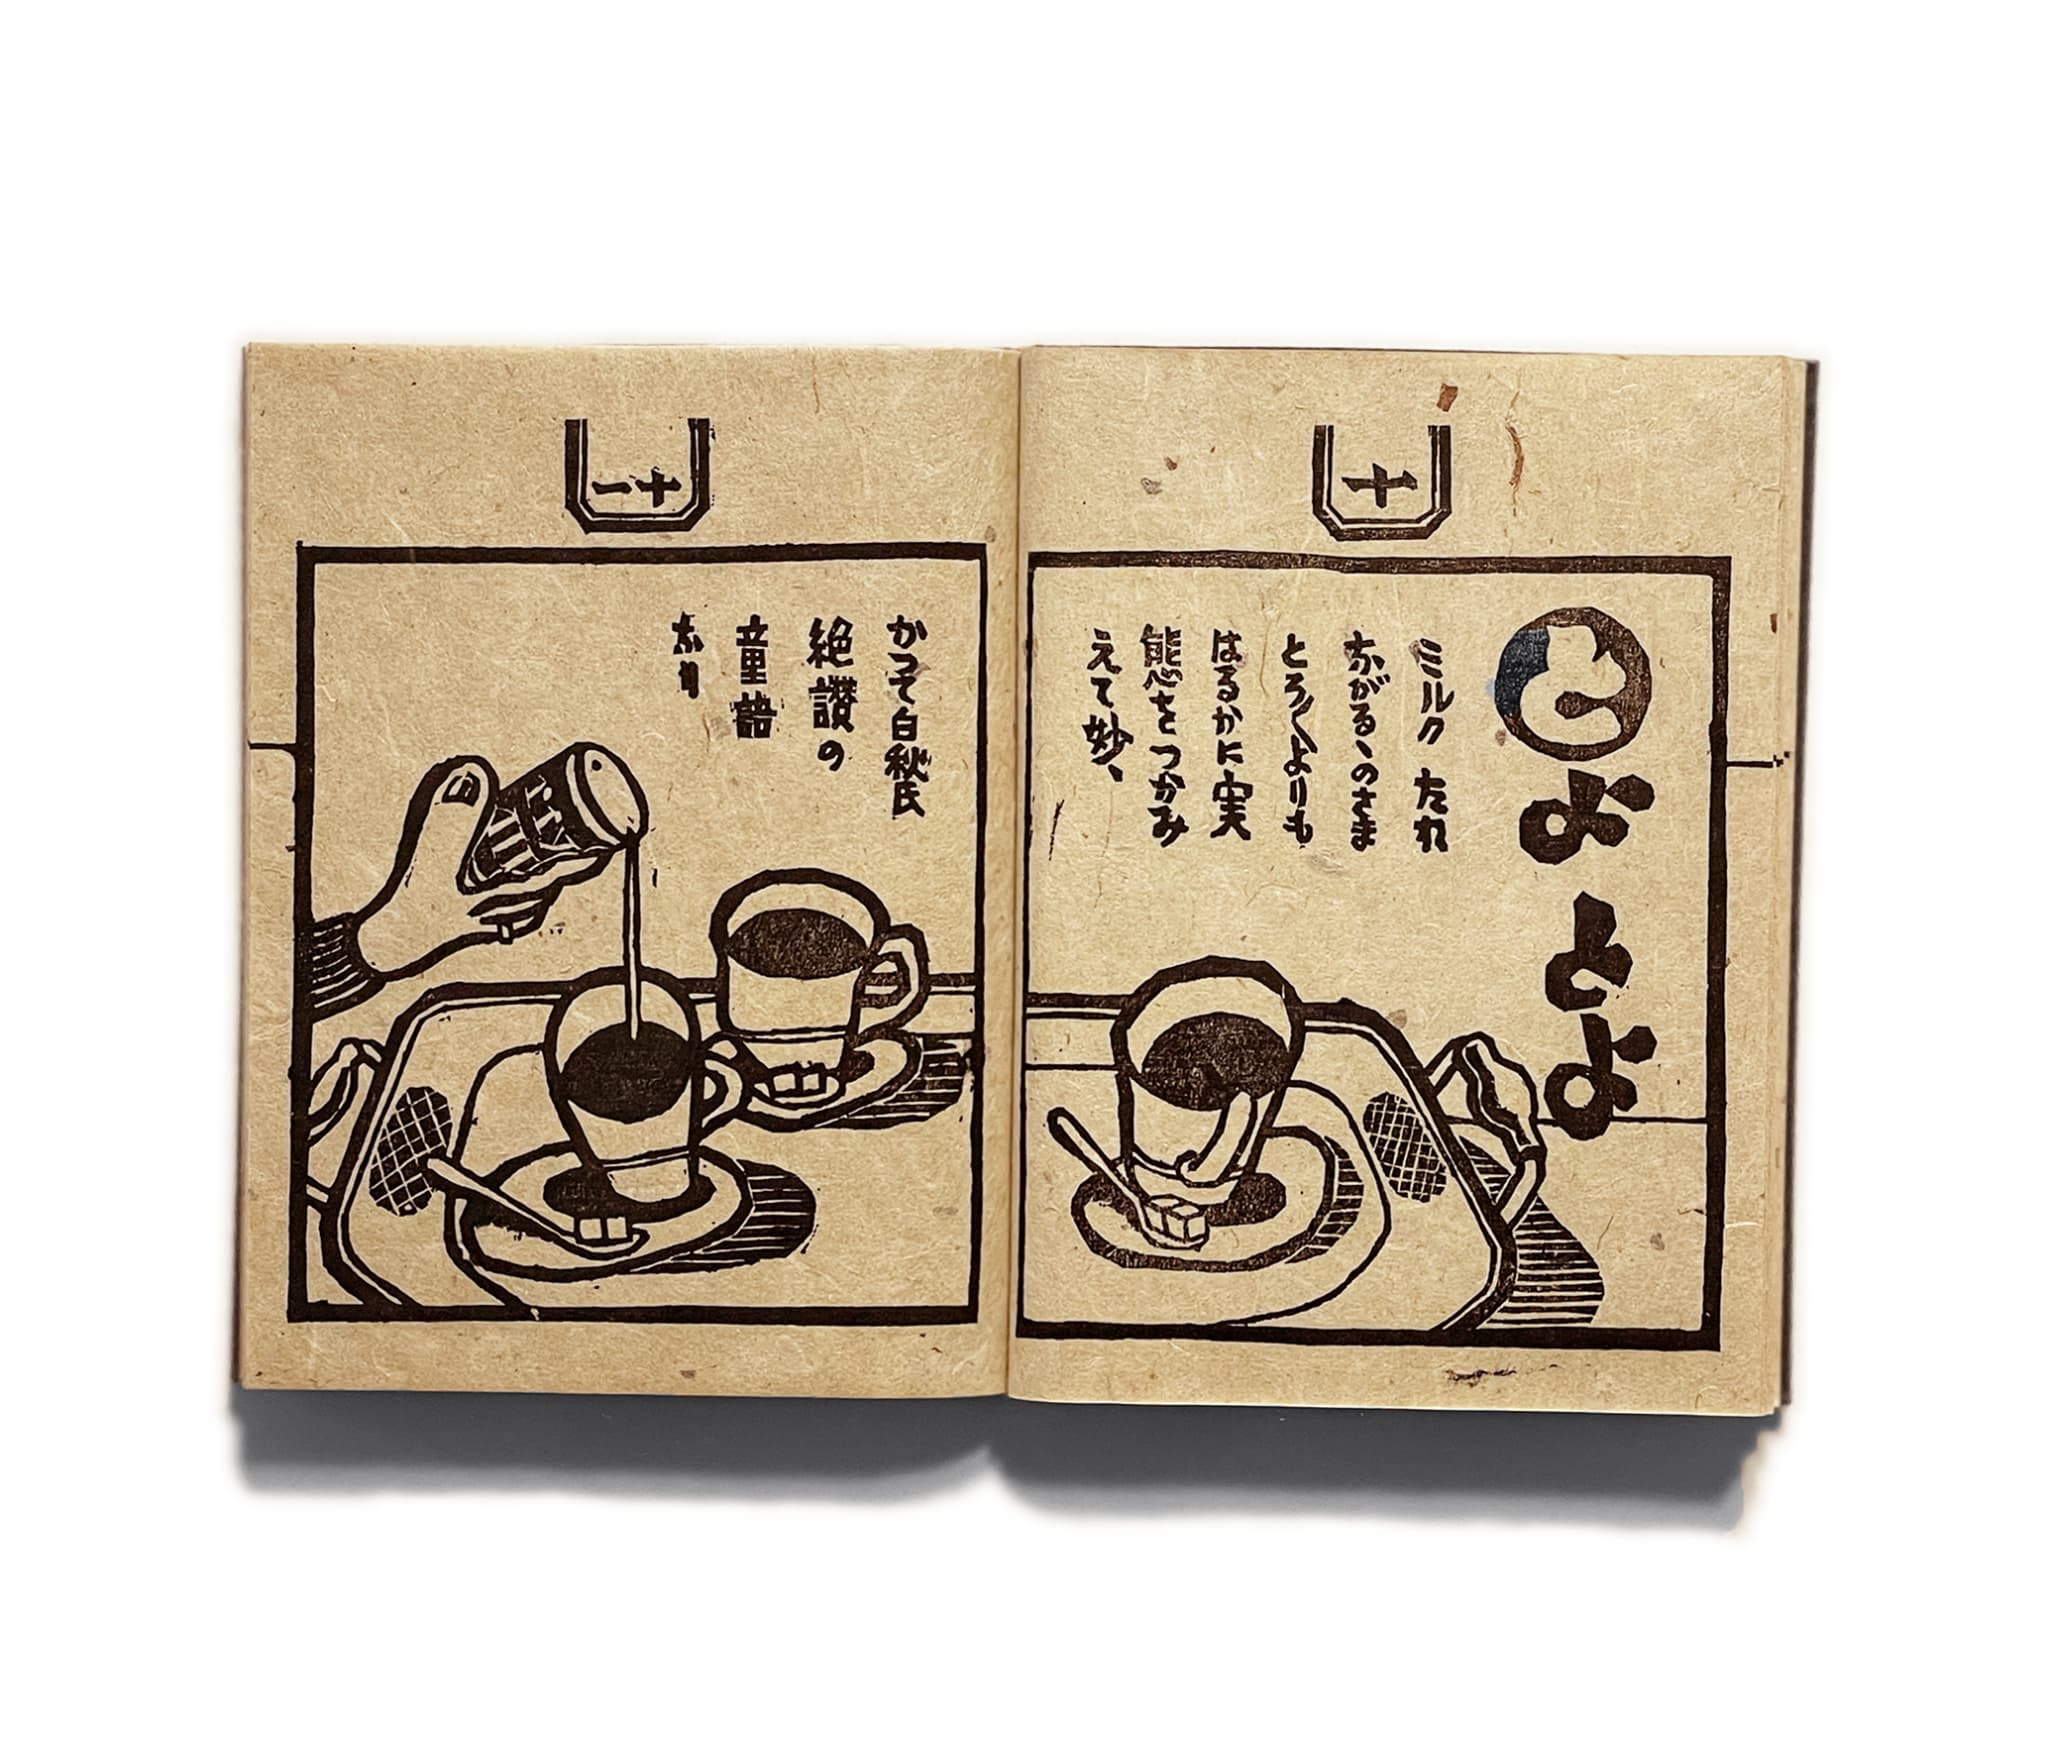 十
とよとよ
ミルク たれ
ながるゝのさま
とろ〱よりも
はるかに実
態をつかみ
えて妙、
十一
かつて白秋氏
絶讃の
童語
なり